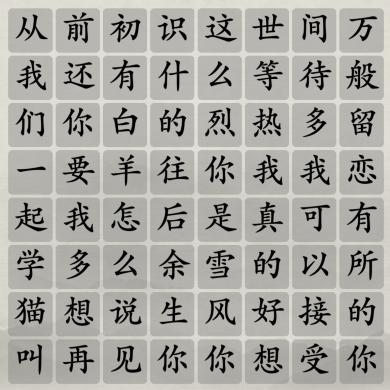 从前初识这世间万
我还有什么等待般
们你白的烈热多留
一要羊往你我我恋
起我怎后是真可有
学多么余雪的以所
猫想说生风好接的
叫再见你你想受你